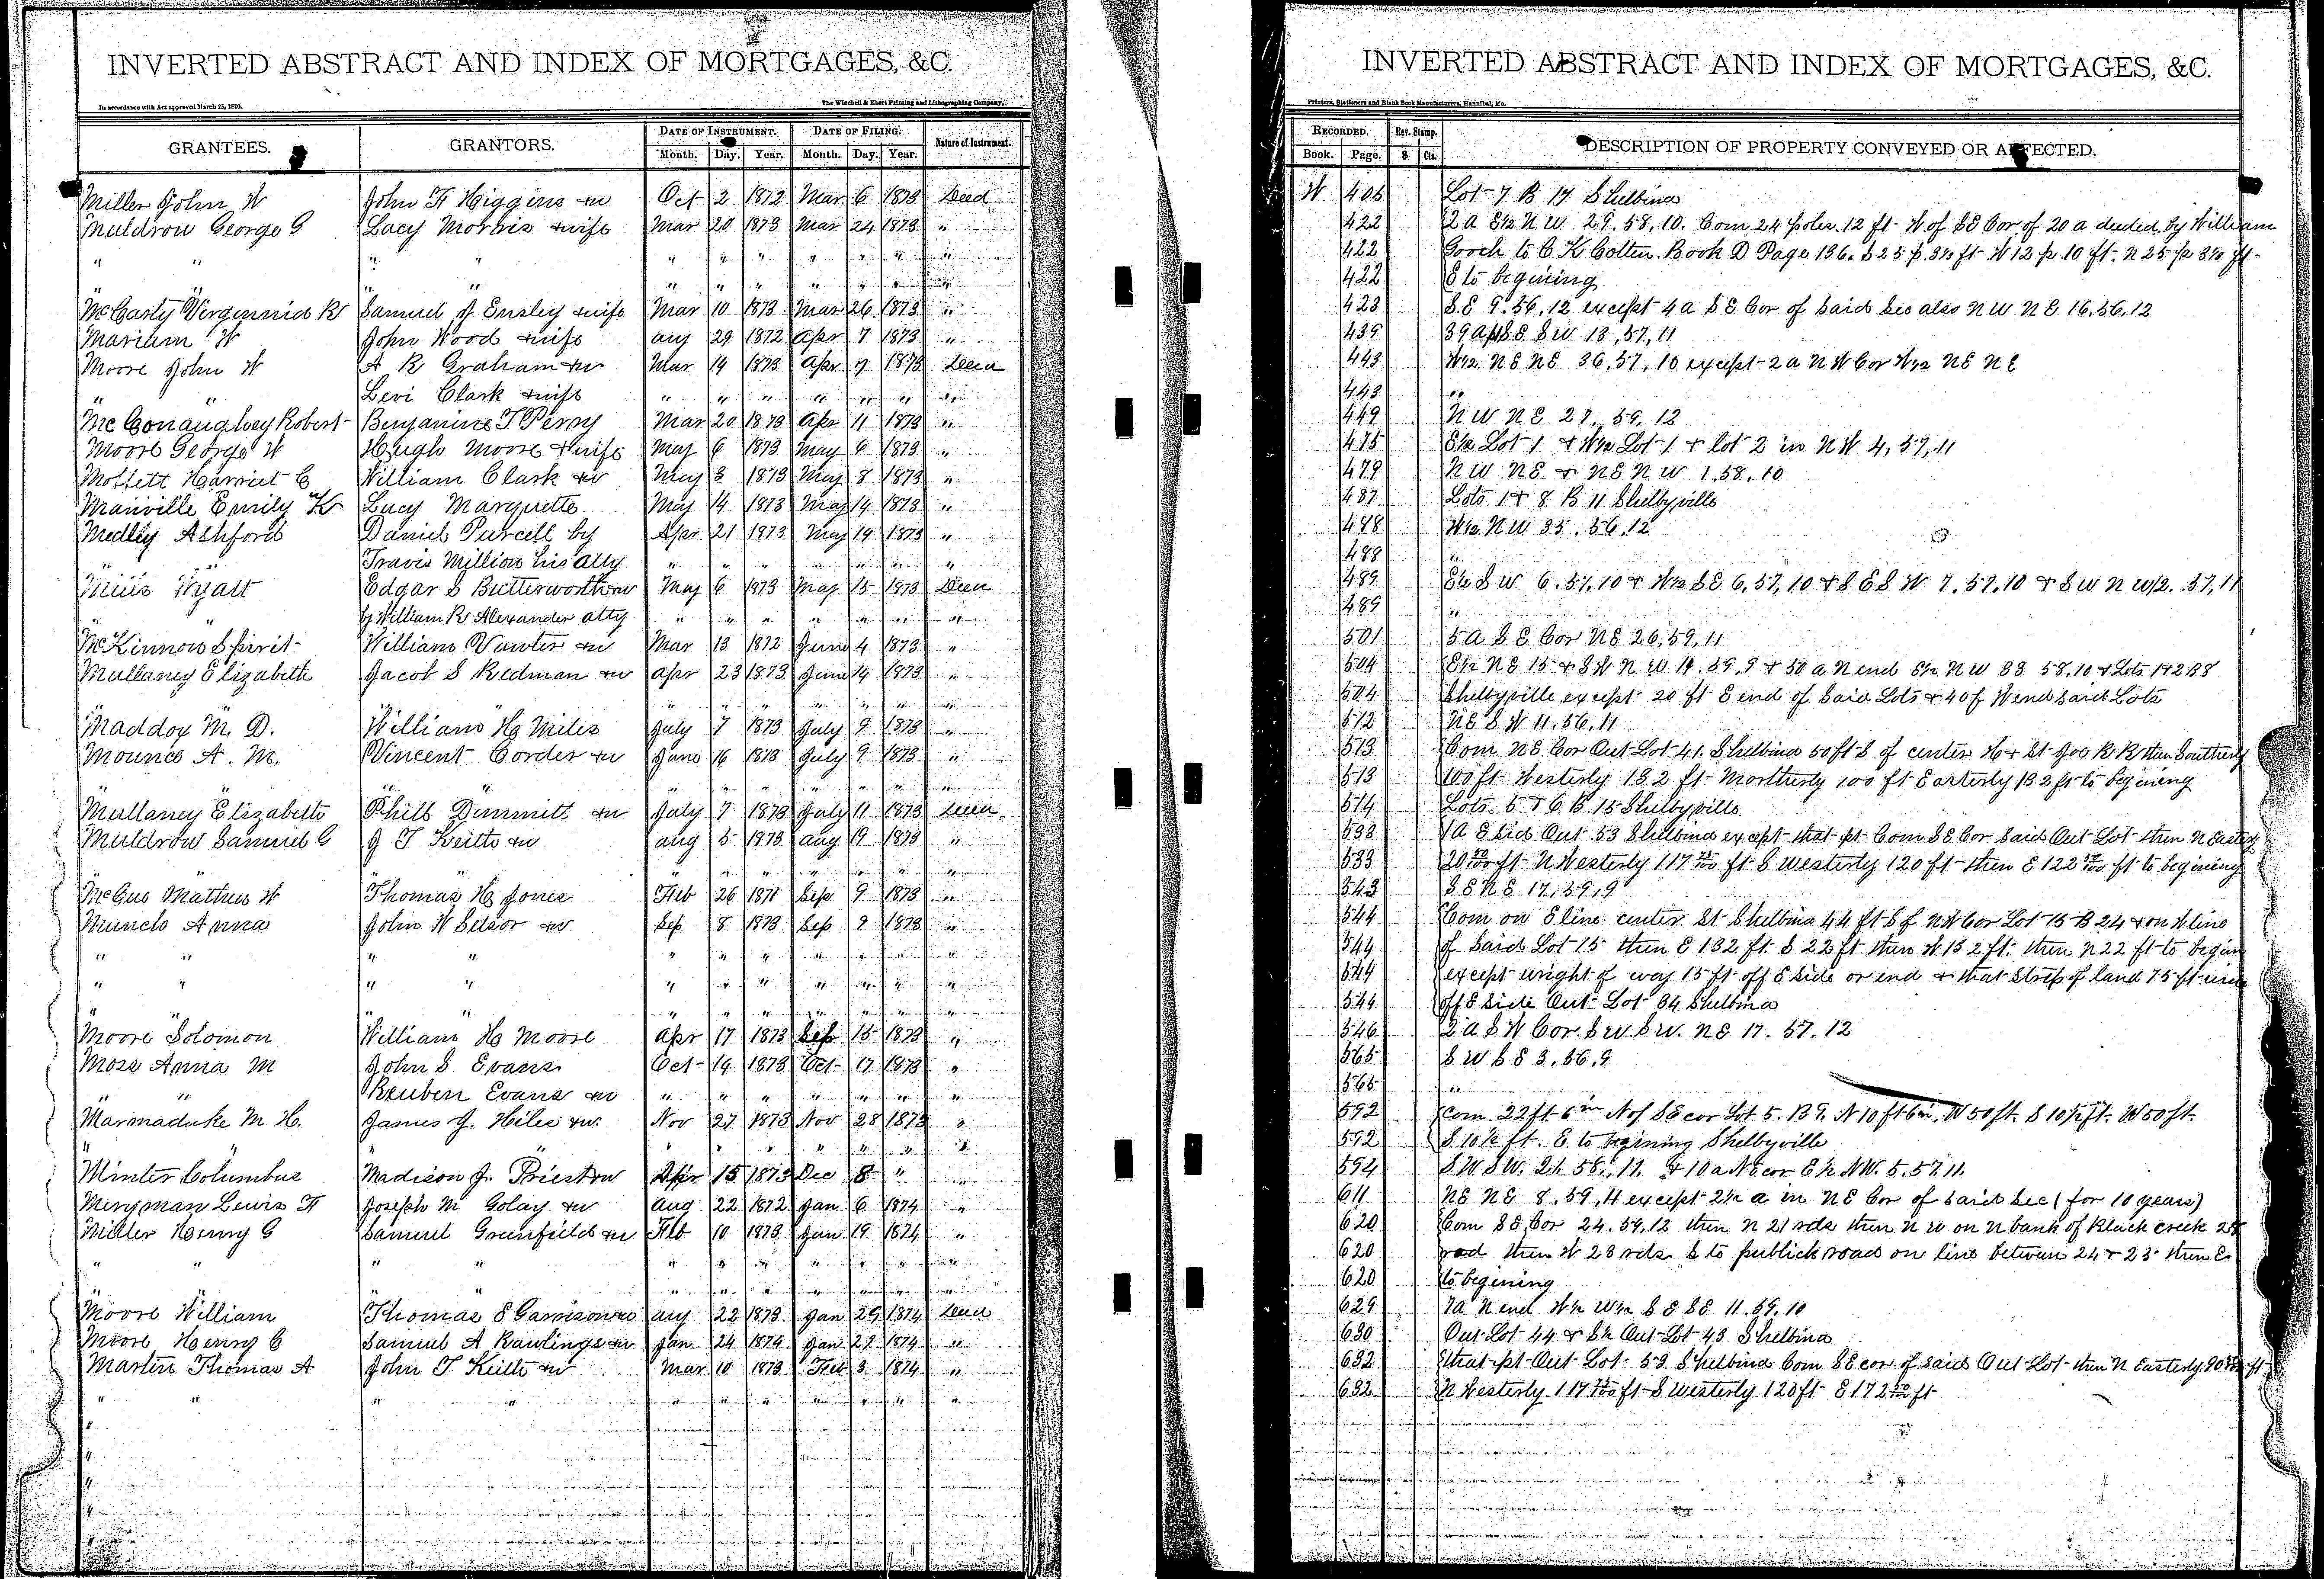 INVERTED ABSTRACT AND INDEX OF MORTGAGES, &C.
In accordance with Act approved March 25, 1870.
The Winchell & Ebert Printing and Lithographing Company,
GRANTEES. GRANTORS. DATE OF INSTRUMENT. DATE OF FILING. Nature of Instrument.
Month. Day. Year. Month. Day. Year.
Miller John W John F Higgins &w Oct 2 1872 Mar 6 1873 Deed
Muldrow George G Lacy Morris &wife Mar 20 1873 Mar 24 1873 "
" " " " " " " " " " "
" " " " " " " " "
McCarty Virgennid R Samuel J Ensley &wife Mar 10 1873 Mar 26 1873 "
Mariam W John Wood &wife aug 29 1872 apr 7 1873 "
Moore John W A R Graham &w Mar 19 1873 apr 9 1873 Deed
" " Levi Clark &wife " " " " " " "
McConaughey Robert Benjamine T Perry Mar 20 1873 apr 11 1873 "
Moore George W Hough Moore &wife May 6 1873 May 6 1873 "
Moffett Harriet C William Clark &w May 3 1873 May 8 1873 "
Manville Emily K Lucy Marquette May 14 1873 May 14 1873 "
Medley Ashford Daniel Purcell by Apr 21 1873 May 14 1873 "
" " Travis Million his atty " " " " " " "
Wyatt Edgar S Butterworth &w May 6 1873 May 15 1873 Deed
" " by William R Alexander atty " " " " " " "
McKinnow Spirit William Vawter &w Mar 13 1872 June 4 1873 "
Mullaney Elizabeth Jacob S Redman &w apr 23 1873 June 14 1873 "
" " " " " " " " "
Maddox M. D. William H Miles July 7 1873 July 9 1873 "
Mounce A. M. Vincent Corder &w June 16 1873 July 9 1873 "
" " " " " " " " "
Mullaney Elizabeth Phill Dimmitt &w July 7 1873 July 11 1873 Deed
Muldrow Samuel C J T Keitte &w aug 5 1873 aug 19 1873 "
" " " " " " " " "
McCue Mathew W Thomas H Jones Feb 26 1871 Sep 9 1873 "
Munch Anna John W Selsor &w Sep 8 1873 Sep 9 1873 "
" " " " " " " " " " "
" " " " " " " " " " "
" " " " " " " " "
Moore Solomon William H Moore apr 17 1873 Sep 15 1873 "
Moss Anna M John S Evans Oct 14 1873 Oct 17 1873 "
" " Reuben Evans &w " " " " " " "
Marmaduke M H. James J. Hiles &w. Nov 27 1873 Nov 28 1873 "
" " " " " " " " "
Minter Columbus Madison J. Priest &w Apr 15 1873 Dec 8 " "
Meryman Lewis F Joseph M Golay &w aug 22 1872 Jan 6 1874 "
Miller Henry G Samuel Greenfield &w Feb 10 1873 Jan 19 1874 "
" " " " " " " " " " "
" " " " " " " " "
Moore William Thomas E Garrison &w aug 22 1873 Jan 29 1874 Deed
Moore Henry C Samuel A Rawlings &w Jan 24 1874 Jan 27 1874 "
Martin Thomas A John T Keitte &w Mar 10 1873 Feb 3 1874 "
" " " " " " " " " " "
INVERTED ABSTRACT AND INDEX OF MORTGAGES, &C.
Printers, Stationers and Blank Book Manufacturers, Hannibal, Mo.
RECORDED. Rev. Stamp. DESCRIPTION OF PROPERTY CONVEYED OR AFFECTED.
Book. Page. $ Cts.
W 406 Lot 7 B 17 Shelbina
422 2 a E½ N W 29. 58, 10. Com 24 poles 12 ft W of SE Cor of 20 a deeded by William
422 Gooch to C. K Cotten Book D Page 136. S 25 p. 3½ ft W 12 p 10 ft. N 25 p 3½ ft
422 E to begining
423 S.E 9. 56, 12 except 4 a S E Cor of said Sec also N W N E 16. 56. 12
439 39 a S E S W 13, 57, 11
443 W½ N E N E 36, 57, 10 except 2 a N W Cor W½ N E N E
443 "
449 N W N E 27, 59, 12
475 E½ Lot 1 & W½ Lot 1 & lot 2 in N W 4, 57, 11
479 N W N E & N E N W 1. 58, 10
487 Lots 1 & 8 B 11 Shelbyville
488 W½ N W 35. 56, 12
488 "
489 E½ S W 6. 57, 10 & W½ S E 6, 57, 10 & S E S W 7. 57. 10 & S W N W 12. 57, 11
489 "
501 5 a S E Cor N E 26, 59, 11
504 E½ N E 15 & S W N W 14. 59, 9 & 50 a N end E½ N W 33 58, 10 & Lots 1 & 2 B 8
504 Shelbyville except 20 ft E end of said Lots & 40 f W end said Lots
512 N E S W 11. 56, 11
513 Com N E Cor Out Lot 41. Shelbina 50 ft S of center H & St Joe R R then Southerly
513 100 ft Westerly 132 ft Northerly 100 ft Easterly 132 ft to begining
514 Lots 5 & 6 B 15 Shelbyville
533 1 a E sid Out 53 Shelbina except that pt Com S E Cor said Out Lot then N Easterly
533 ft N Westerly 117 ft S Westerly 120 ft then E 122 ft to begining
543 S E N E 17, 59, 9
544 Com on E line center St Shelbina 44 ft S of N W Cor Lot 15 B 24 & on W line
544 of said Lot 15 then E 132 ft. S 22 ft then W 132 ft. then N 22 ft to begin
544 except wright of way 15 ft off E side or end & that strip of land 75 ft
544 off E side Out Lot 34 Shelbina
546 2 a S W Cor. S W. S W. N E 17. 57. 12
565 S W S E 3, 56, 9
565 "
592 Com 22 ft 6 in N of SE cor Lot 5. B 9. N 10 ft 6 in, W 50 ft. S 10½ ft. W 50 ft.
592 S 10½ ft. E. to begining Shelbyville
594 S W S W. 21. 58, 11. & 10 a N E cor E ½ N W. 5. 57. 11.
611 N E N E 8. 59, 11 except 2½ a in N E Cor of said Sec (for 10 years)
620 Com S E Cor 24. 59, 12 then N 21 rds then N W on N bank of Black creek
620 rod then W 28 rds S to publick road on line between 24 & 25 then E
620 to begining
629 7 a N end W½ W½ S E S E 11. 59. 10
630 Out Lot 44 & S½ Out Lot 43 Shelbina
632 that pt Out Lot 53 Shelbina Com S E cor of said Out Lot then N Easterly ft
632 N Westerly 117 ft S Westerly 120 ft E 172 ft